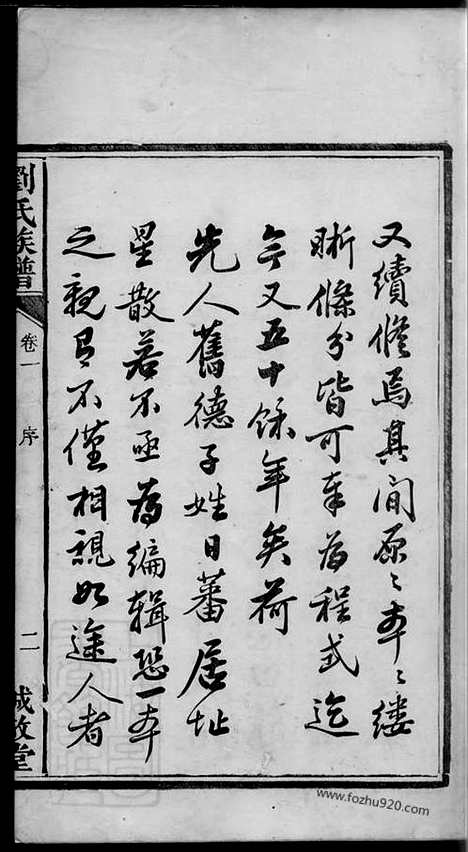 又續修焉其間原〻本〻縷
晰條分皆可奉為程式迄
今又五十餘年矣荷
先人舊德子姓日蕃居址
星散若不亟為編輯恐一本
之親有不僅相視如途人者
劉氏族譜
卷一
序
二
敦堂
www.fozhu920.com